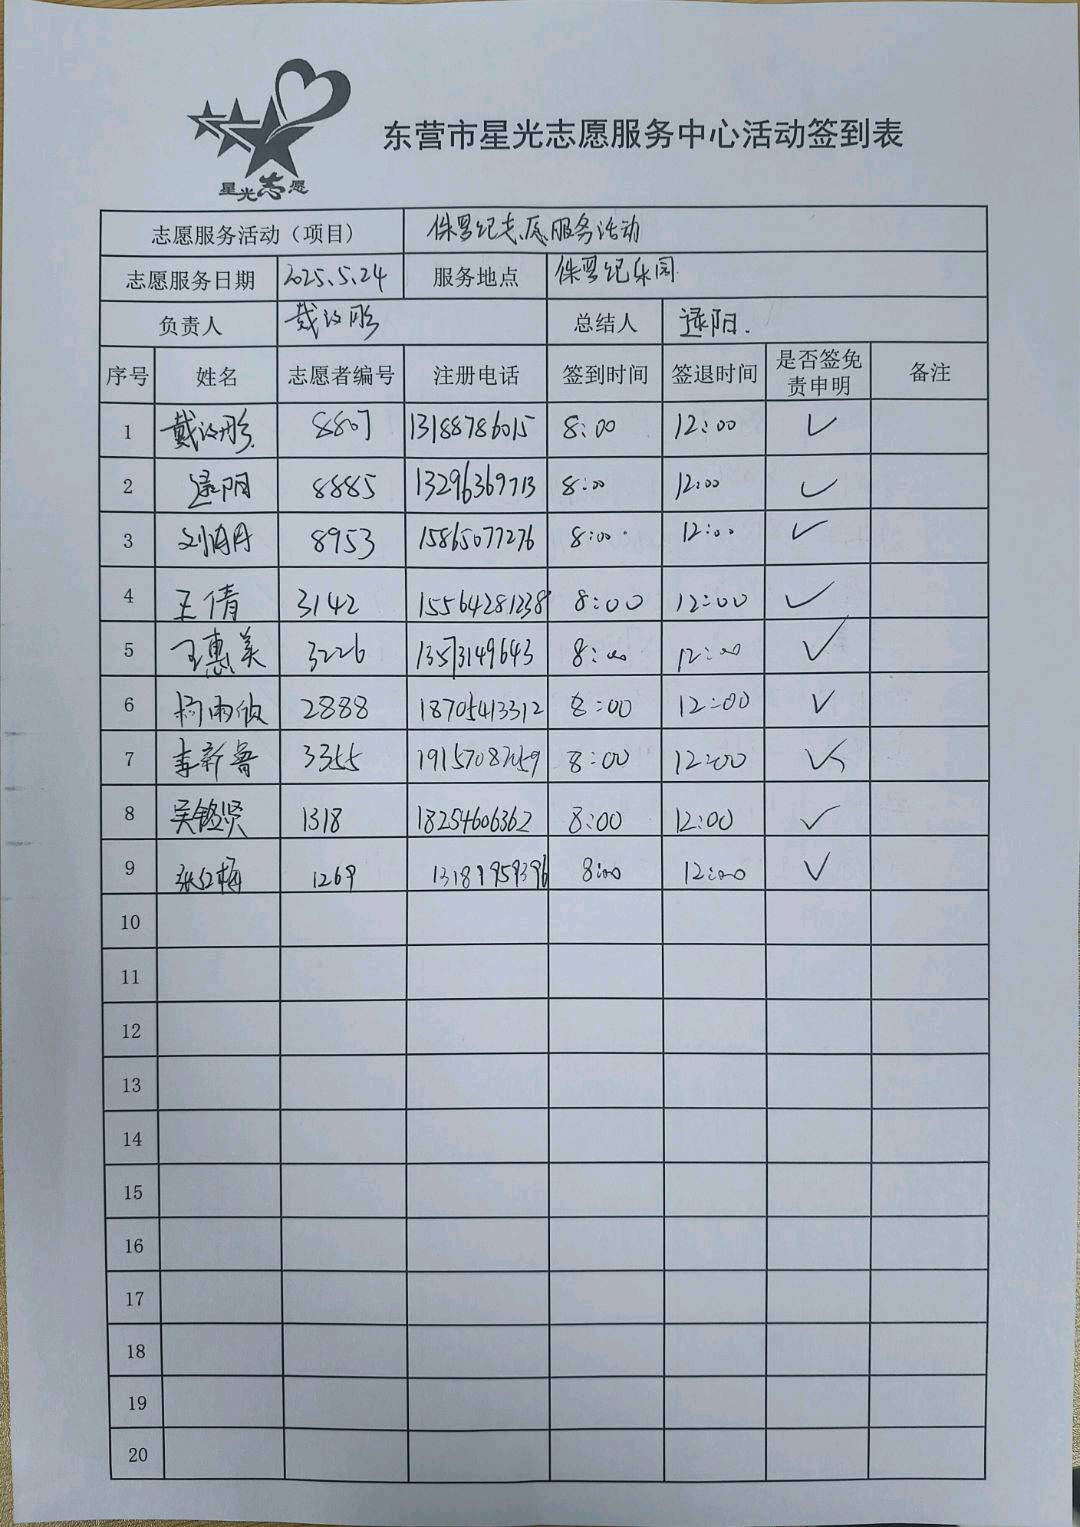 星光志愿
东营市星光志愿服务中心活动签到表
志愿服务活动（项目） 侏罗纪志愿服务活动
志愿服务日期 2025.5.24 服务地点 侏罗纪乐园
负责人 戴汶彤 总结人 逯阳.
序号 姓名 志愿者编号 注册电话 签到时间 签退时间 是否签免责申明 备注
1 戴汶彤 8807 13188786015 8:00 12:00 ✓
2 逯阳 8885 13296369713 8:00 12:00 ✓
3 8953 15865077276 8:00 12:00 ✓
4 王倩 3142 15564281238 8:00 12:00 ✓
5 王惠美 3226 13573149643 8:00 12:00 ✓
6 2888 18705413312 8:00 12:00 ✓
7 李新鲁 3355 8:00 12:00 ✓
8 1318 18254606362 8:00 12:00 ✓
9 张红梅 1269 13181959396 8:00 12:00 ✓
10
11
12
13
14
15
16
17
18
19
20